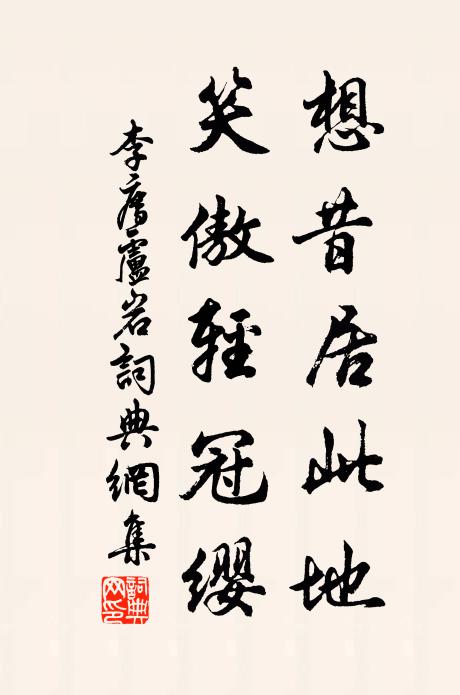 想昔居此地
笑傲輕冠纓
李廌廬岩詞典網集
詞典網印